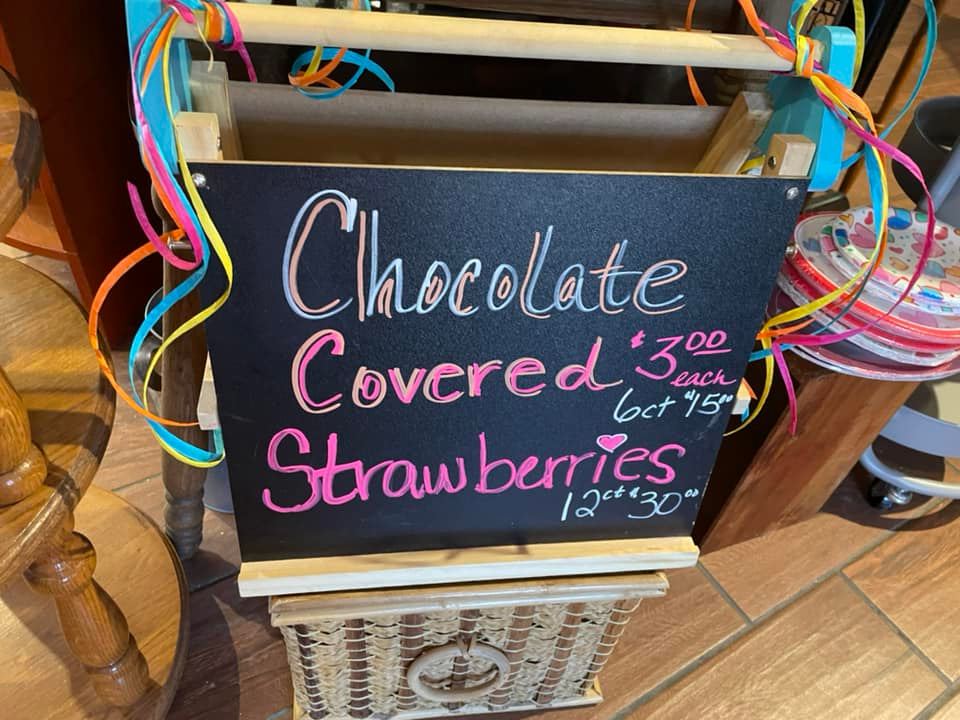 Chocolate
Covered $3.00 each
6ct $15.00
Strawberries
12ct $30.00